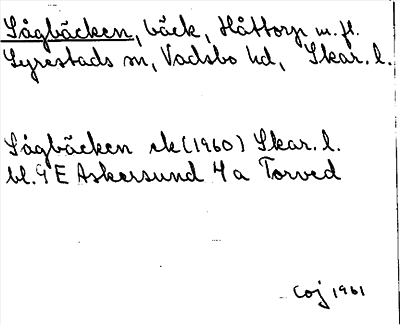 Sågbäcken, bäck, Håttorp m.fl.
Lyrestads sn, Vadsbo hd, Skar. l.
Sågbäcken ek (1960) Skar. l.
bl. 9 E Askersund 4 a Torved
Coj 1961